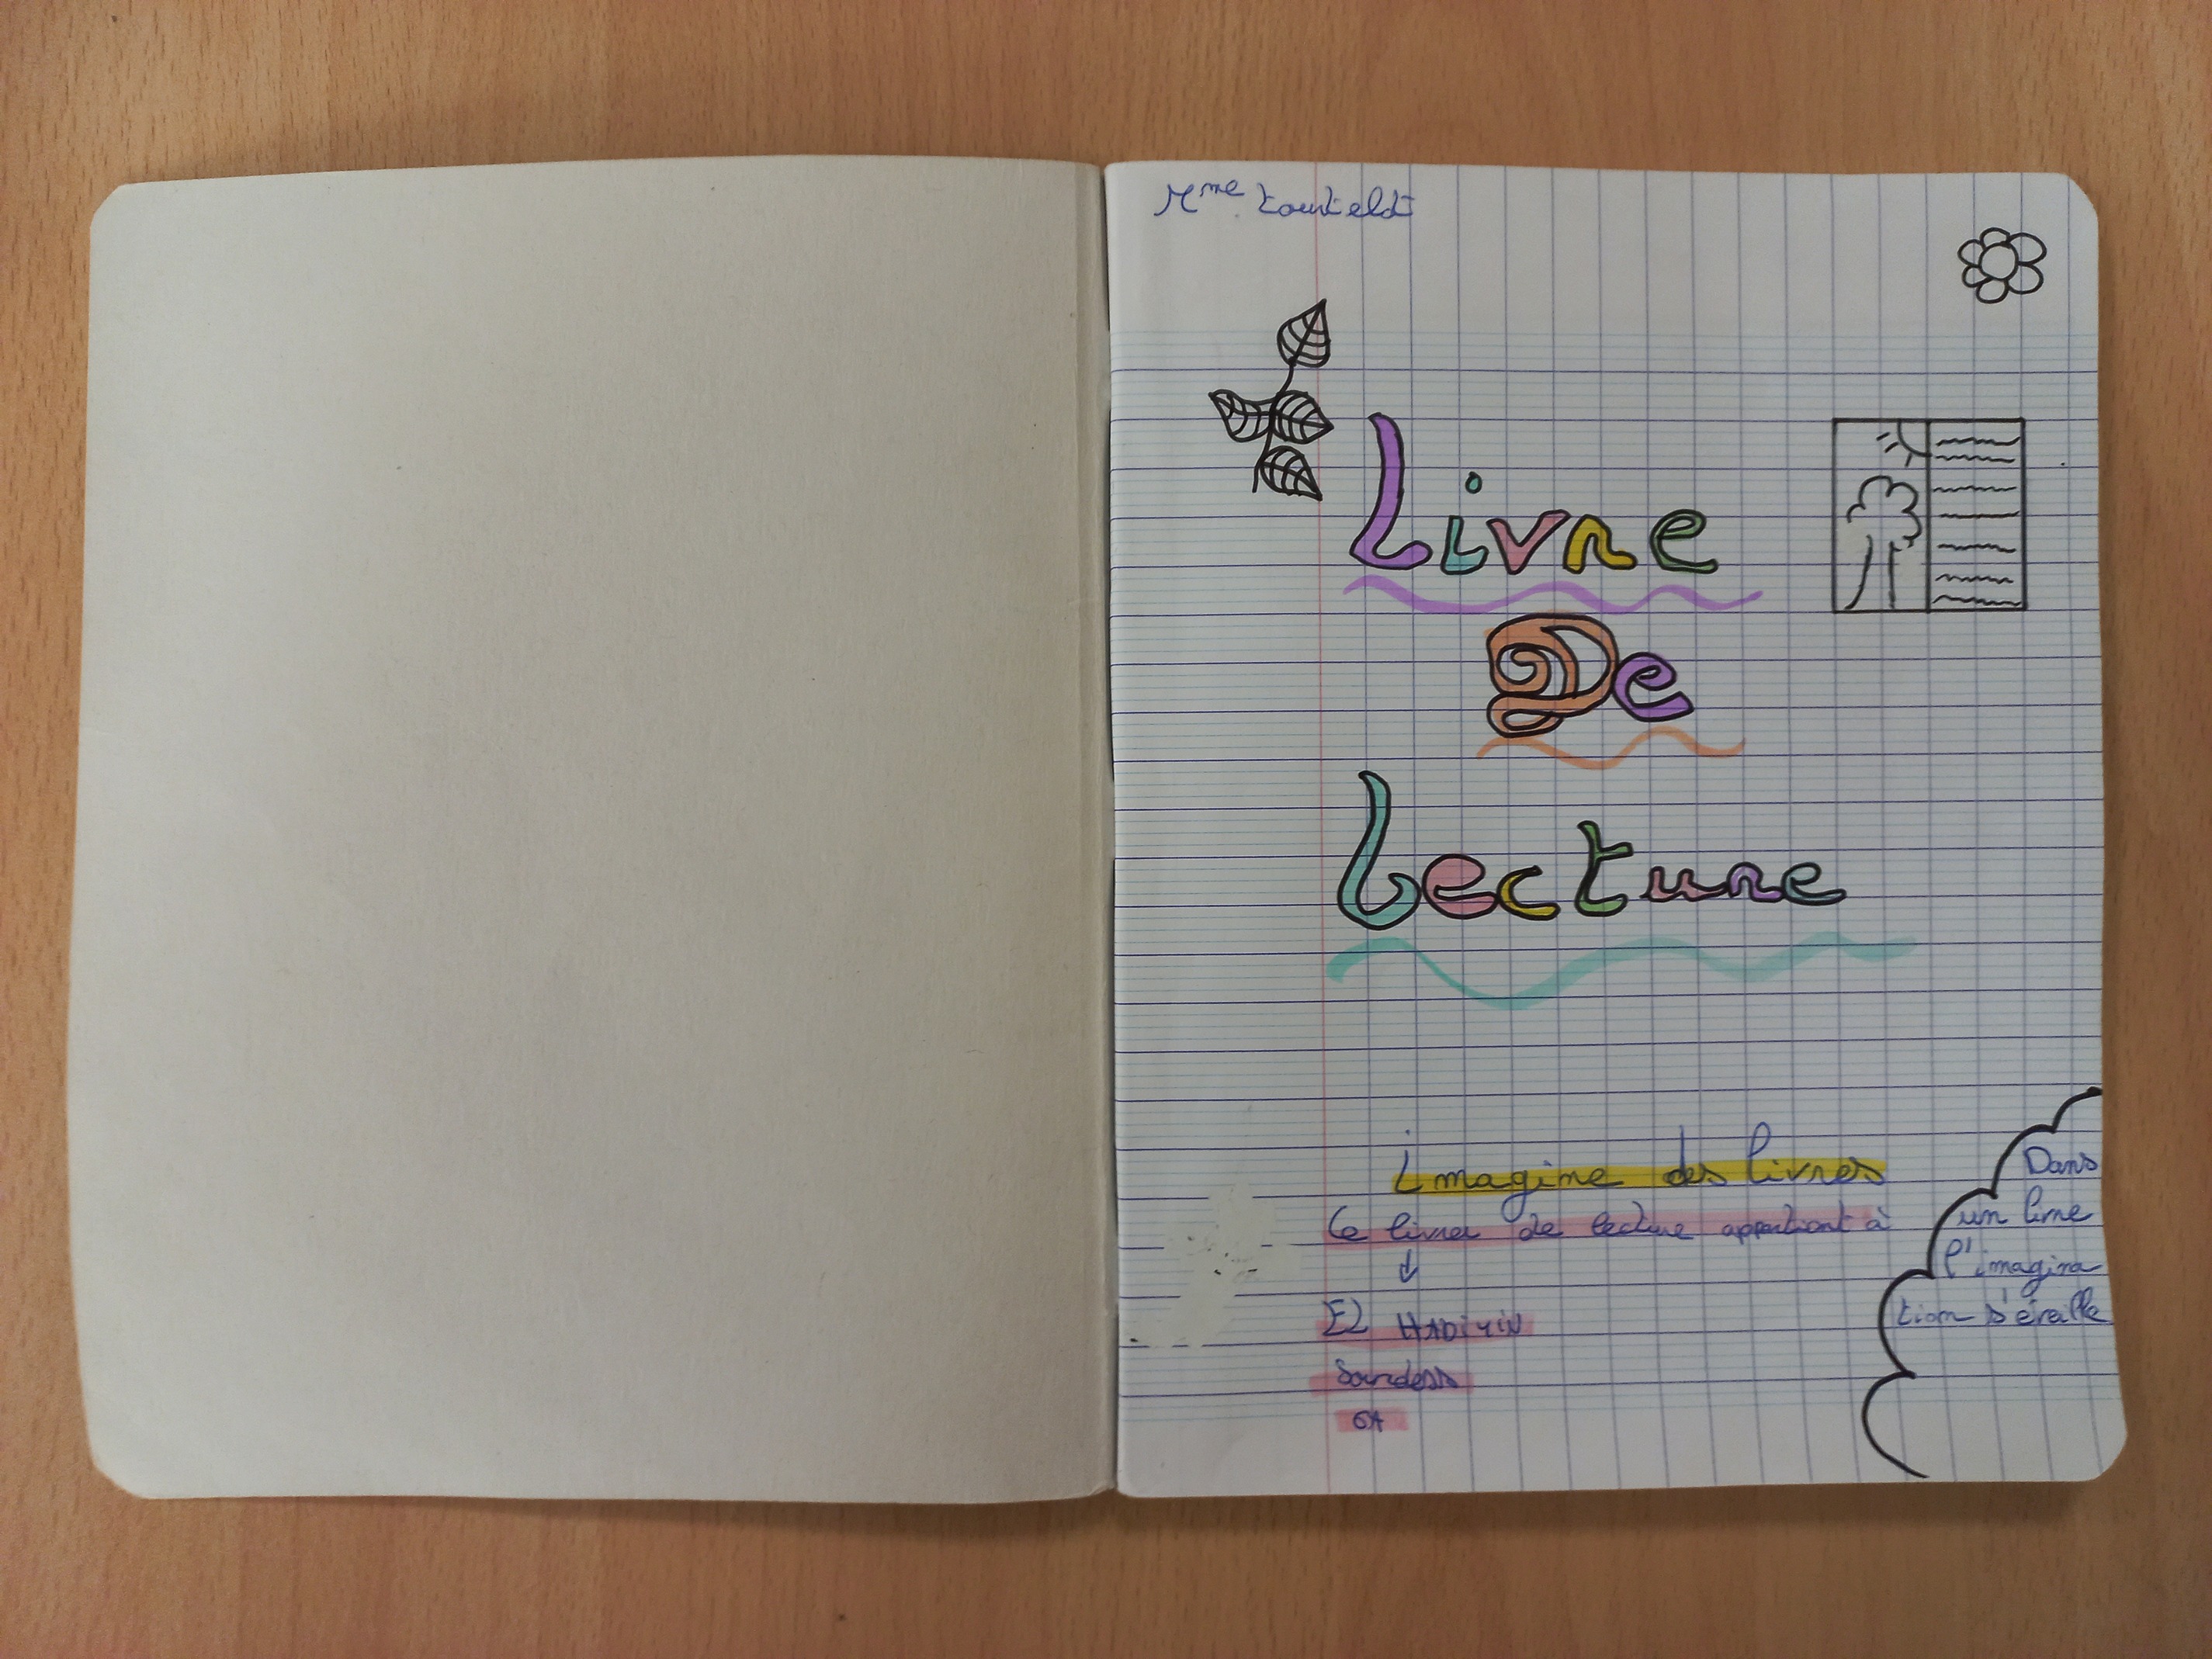 Mme
Livre
De
Lecture
imagine des livres
Ce livret de lecture appartient à
EL HADIYIN
6A
Dans
un livre
l'imagina
tion s'éveille